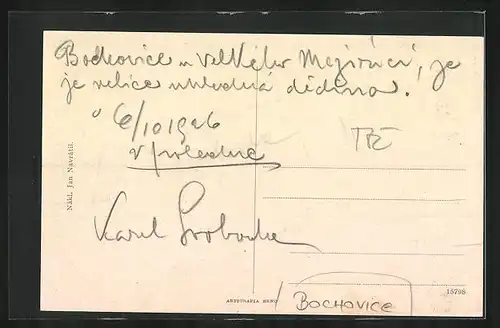 Bochovice u Velkého Meziříčí, je
je velice úhledná dědina.
6/10 1926
v poledne
TŘE
Karel
Nákl. Jan Navrátil.
15798
BOCHOVICE